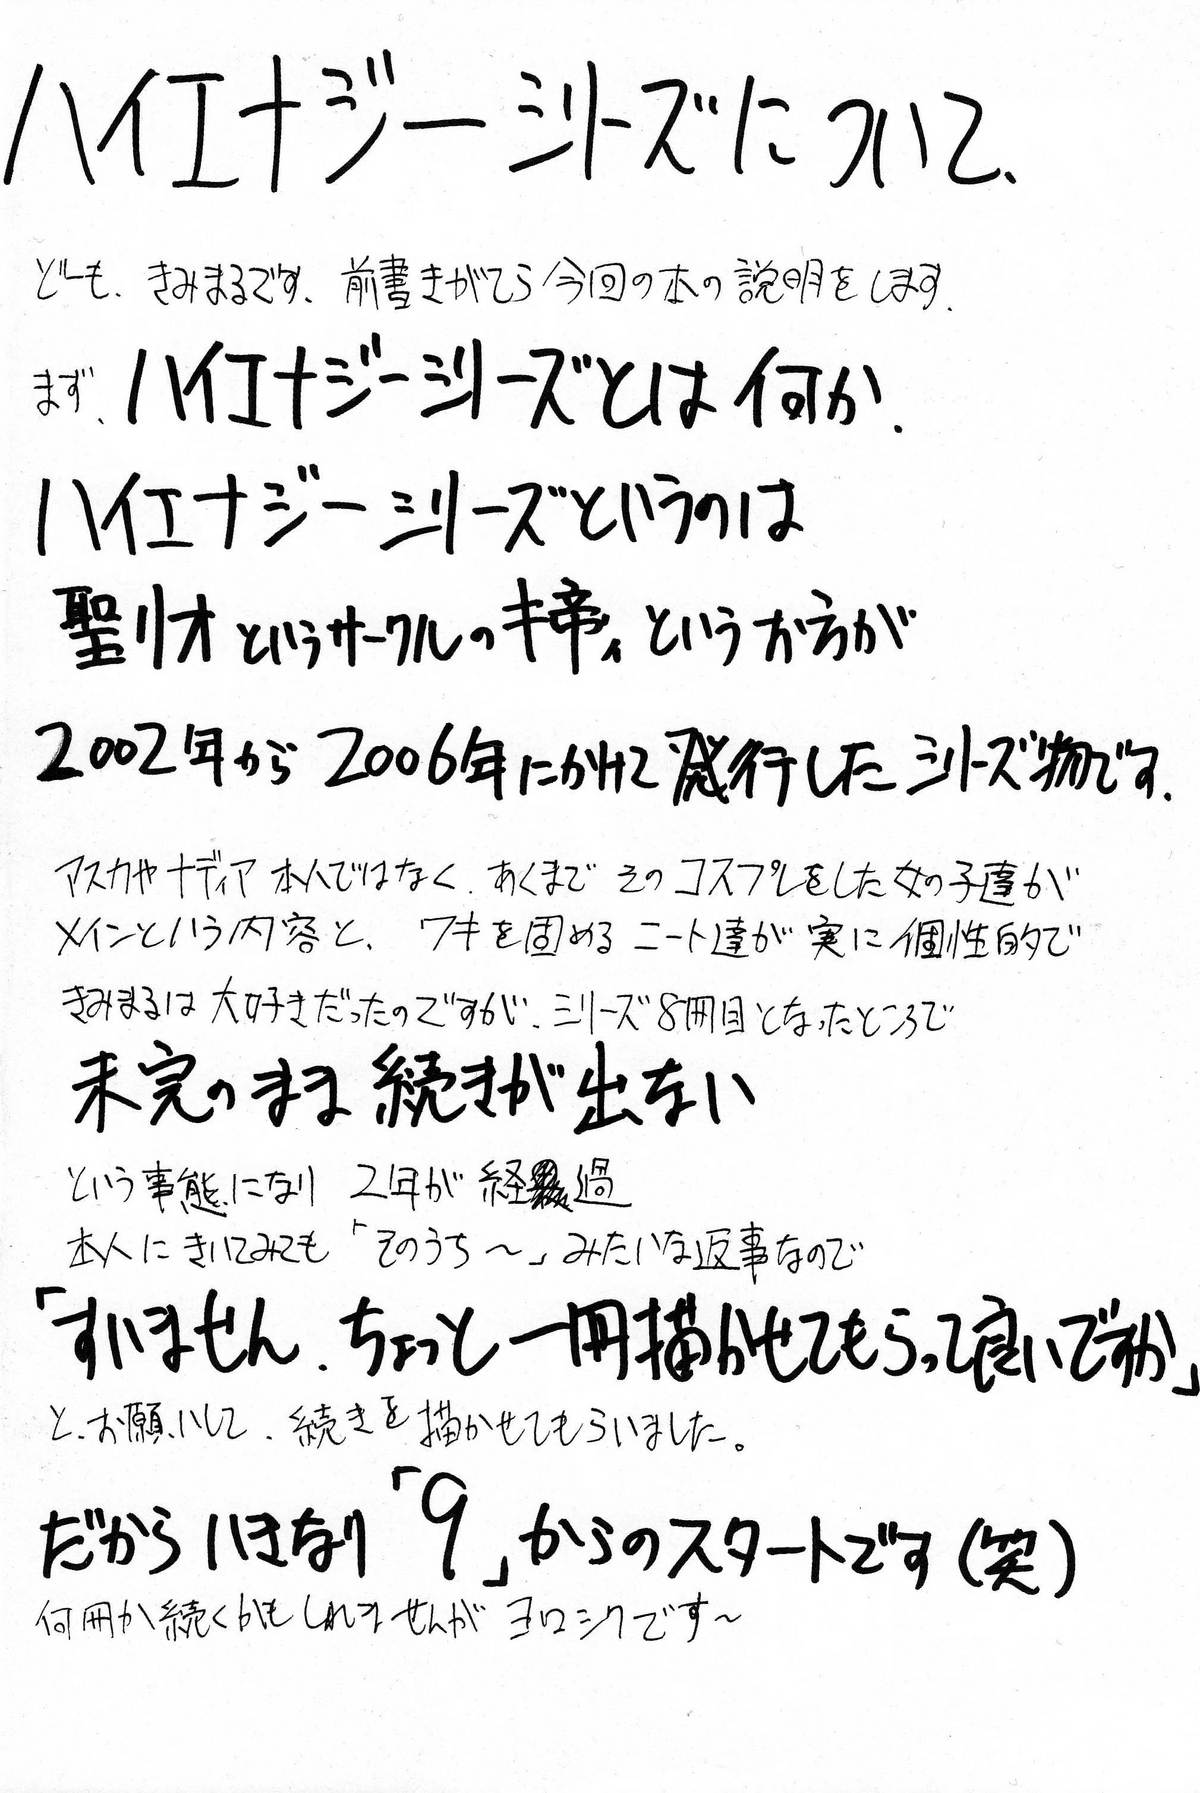 ハイエナジーシリーズについて、
どーも、きみまるです、前書きがてら今回の本の説明をします、
まず、ハイエナジーシリーズとは何か、
ハイエナジーシリーズというのは
聖リオというサークルのキ帝ィというお方が
2002年から2006年にかけて発行したシリーズ物です、
アスカやナディア本人ではなく、あくまでそのコスプレをした女の子達が
メインという内容と、ワキを固めるニート達が実に個性的で
きみまるは大好きだったのですが、シリーズ8冊目となったところで
未完のまま続きが出ない
という事態になり 2年が経過
本人にきいてみても「そのうち～」みたいな返事なので
「すいません、ちょっと一冊描かせてもらって良いですか」
と、お願いして、続きを描かせてもらいました。
だからいきなり「9」からのスタートです(笑)
何冊か続くかもしれませんがヨロシクです～